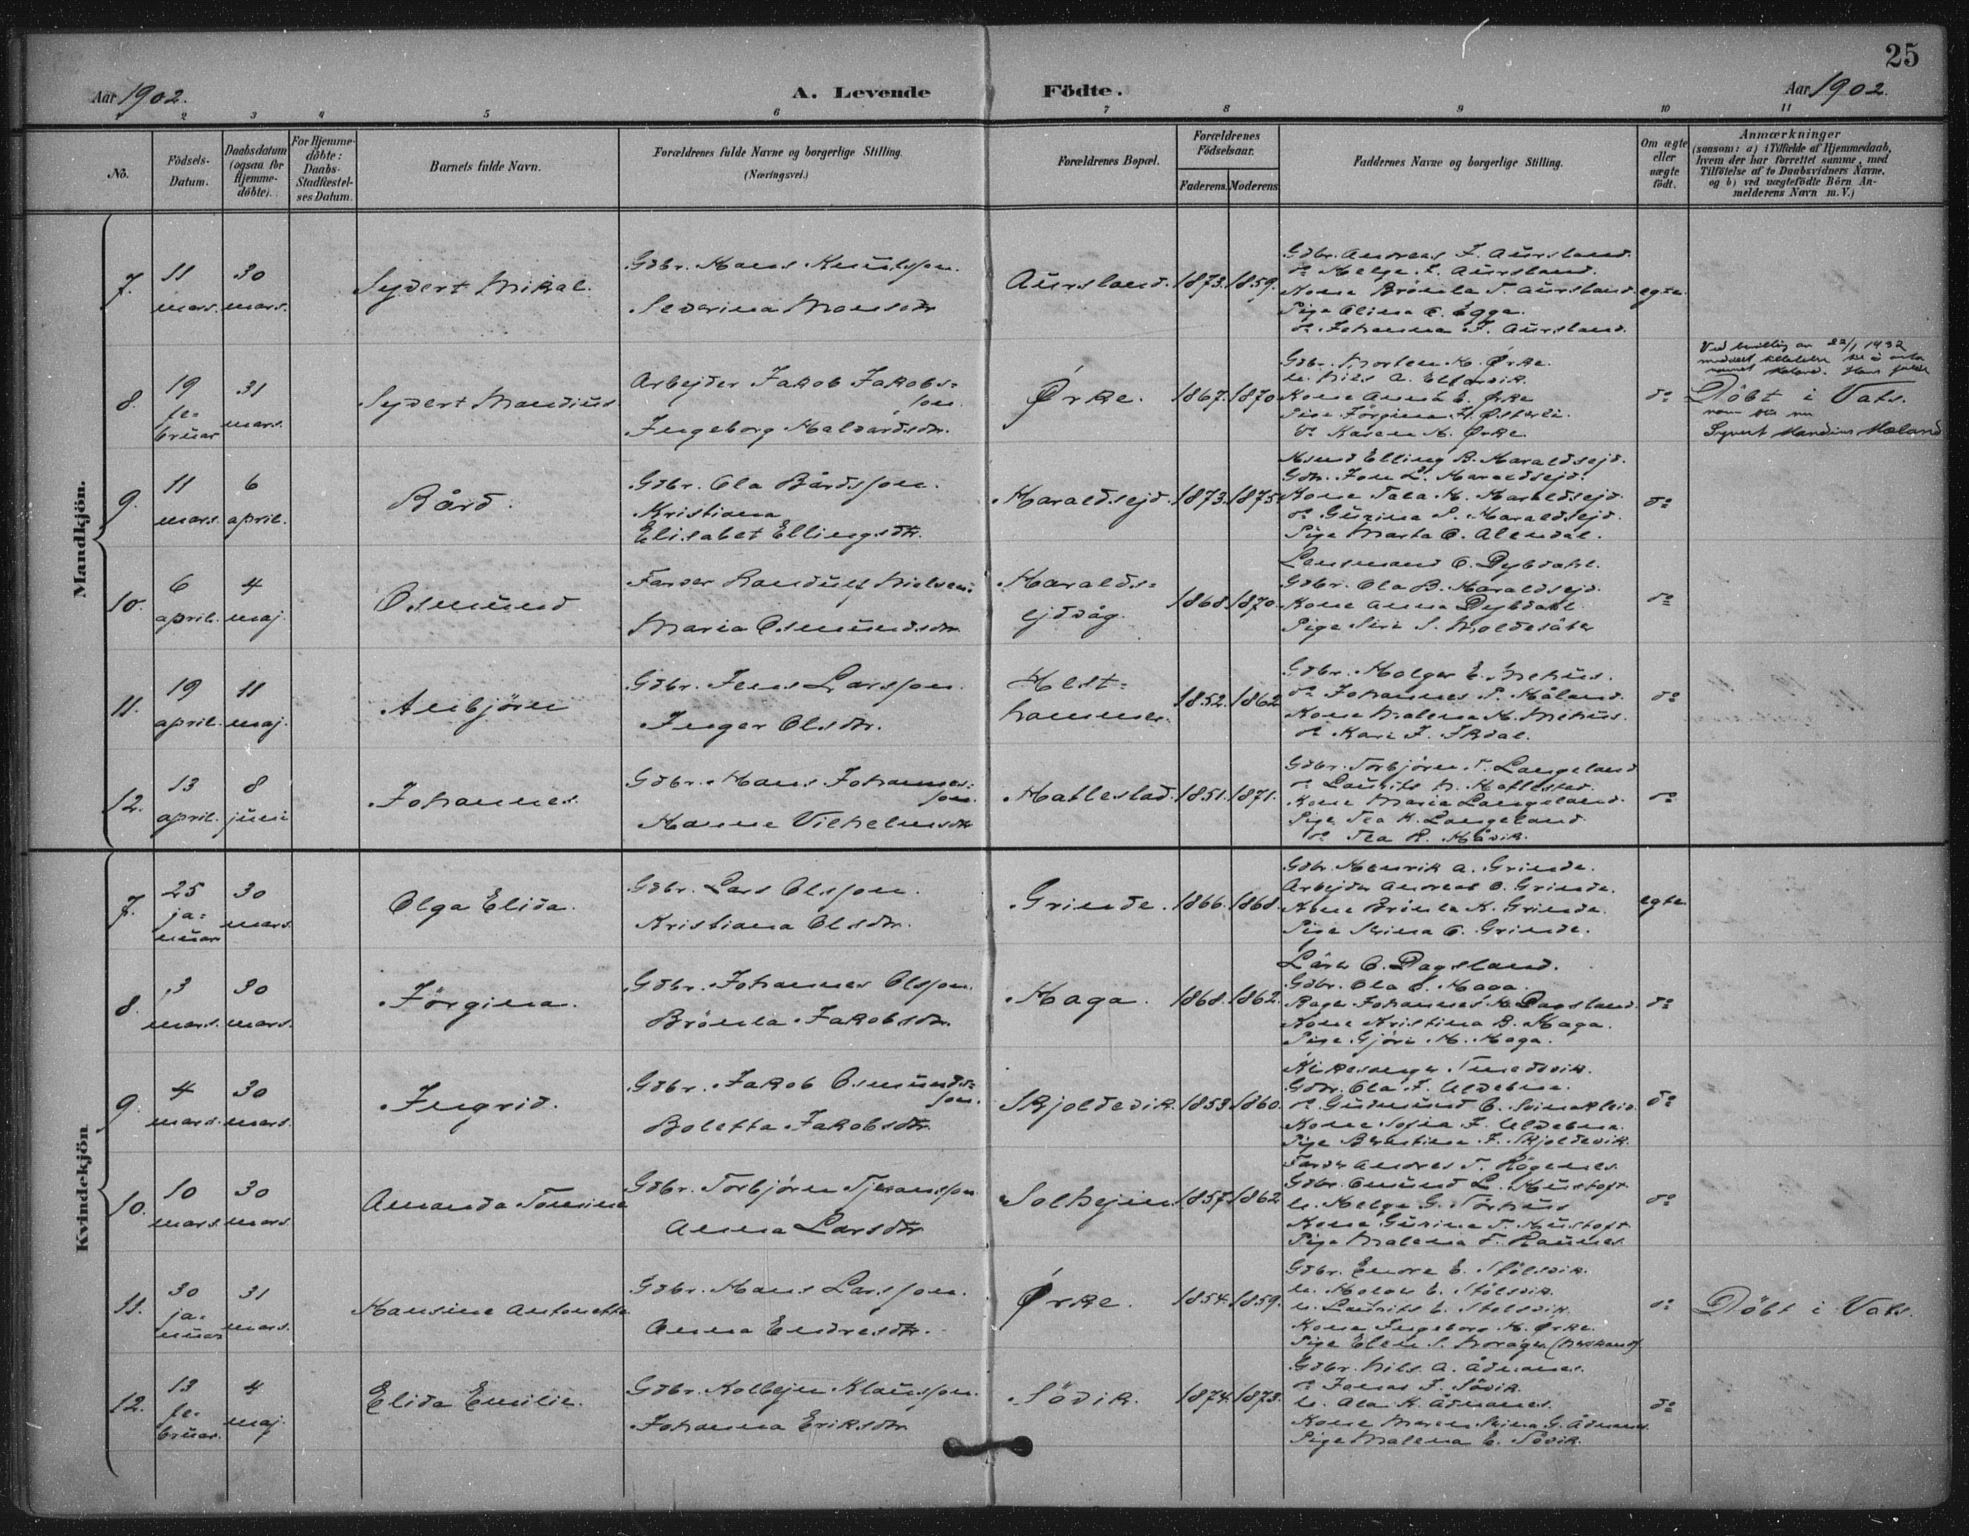 25
Aar 1902.
A. Levende Födte.
Aar 1902.
1 2 3 4 5 6 7 8 9 10 11
No.
Födsels-
Datum.
Daabsdatum
(ogsaa for
Hjemme-
döbte).
For Hjemme-
döbte:
Daabs-
Stadfæstel-
ses Datum.
Barnets fulde Navn.
Forældrenes fulde Navne og borgerlige Stilling.
(Næringsvei.)
Forældrenes Bopæl.
Forældrenes
Födselsaar.
Faderens. Moderens
Faddernes Navne og borgerlige Stilling.
Om ægte
eller
uægte
födt.
Anmærkninger
(saasom: a) i Tilfælde af Hjemmedaab,
hvem der har forrettet samme, med
Tilföielse af to Daabsvidners Navne,
og b) ved uægtefödte Börn An-
melderens Navn m. V.)
Mandkjön.
7. 11 mars. 30 mars.
Sydert Mikal.
Gdbr. Hans Knutsson.
Severina Monsdtr
Aursland. 1873. 1859.
Gdbr. Andreas J. Aursland.
do Helge L. Aursland.
Kone Brönla T. Aursland
Pige Elina O. Egge.
do Johanna J. Aursland.
egte.
8. 19 februar 31 mars.
Sydert Mandius
Arbejder Jakob Jakobs=
son.
Ingeborg Halvardsdtr.
Ørke. 1867. 1870
Gdbr. Morten H. Ørke.
Kone Anna E. Ørke
Pige Jörgina H. Østerli.
do Karen H. Ørke
do
22/1 1932
Döbt i Vats.
Syvert Mandius Mæland
9. 11 mars. 6 april.
Bård.
Gdbr. Ola Bårdsson.
Kristiana
Elisabet Ellingsdtr.
Haraldsejd 1873. 1875
Elling B. Haraldsejd.
Gdbr. Jon L. Haraldsejd.
Kone Tala H. Haraldsejd
do Gurina S. Haraldsejd.
Pige Marta O. Alendal.
do
10. 6 april. 4 maj.
Osmund
Fanger Randulf Nielsen
Maria Osmundsdtr.
Haralds=
ejdvåg. 1868. 1870.
Lensmand O. Dybdahl.
Gdbr. Ola B. Haraldsejd.
Kone Anna Dybdahl.
Pige Siri S. Moldesäter
do
11. 19 april. 11 maj.
Anbjörn
Gdbr. Jens Larsson.
Inger Olsdtr.
Holst=
hammer. 1852. 1862
Gdbr. Holger E. Mehus.
do Johannes P. Håland.
Kone Malena H. Mehus.
do Kari J. Ikdal.
do
12. 13 april. 8 juni
Johannes.
Gdbr. Hans Johannes=
son.
Hanne Vilhelmsdtr
Hatlestad. 1851. 1871.
Gdbr. Torbjörn T. Langeland
do Laurits N. Hatlestad.
Kone Maria Langeland.
Pige Tea H. Langeland
do Tea R. Håvik.
do
Kvindekjön
7. 25 ja=nuar 30 mars
Olga Elida.
Gdbr. Lars Olsson.
Kristiana Olsdtr.
Grinde. 1866. 1868.
Gdbr. Henrik A. Grinde.
Arbejder Andreas O. Grinde.
Kone Brönla K. Grinde.
Pige Stina O. Grinde.
egte
8. 3 mars. 30 mars.
Jörgina.
Gdbr. Johannes Olsson.
Brönla Jakobsdtr.
Haga. 1868. 1862.
Lärer O. Dagsland.
Gdbr. Ola O. Haga.
Johannes H. Dagsland.
Kone Kristina B. Haga.
Pige Gjöri H. Haga.
do
9. 4 mars. 30 mars.
Ingrid.
Gdbr. Jakob Osmunds=
son.
Boletta Jakobsdtr.
Skjoldevik. 1853. 1860.
Kirkesanger Tvedtvik.
Gdbr. Ola J. Aldebma.
do Gudmund O. Svinaklejv
Kone Sofia J. Aldebma.
Pige Berntina J. Skjoldevik.
do
10. 10 mars. 30 mars.
Amanda Tomine
Gdbr. Torbjörn Tjeransson
Anna Larsdtr
Solhejm. 1857. 1862.
Andres T. Rögenes.
Gdbr. Omund L. Hustoft
Helge G. Törhus
Kone Gurine T. Hustoft
Pige Malena T. Raunes.
do
11. 30 ja=nuar 31 mars.
Hansine Antonette
Gdbr. Hans Larsson.
Anna Endresdtr.
Ørke. 1854. 1859.
Gdbr. Endre E. Stölsvik.
Laurits E. Stölsvik.
Kone Ingeborg H. Ørke.
do
Döbt i Vats.
12. 13 fe=bruar. 4 maj.
Elida Emilie.
Gdbr. Kolbejn Klausson.
Johanna Eriksdtr.
Sövik. 1874. 1873.
Gdbr. Nils A. Ådnanes.
do Jonas J. Sövik.
Kone Maren G. Ådnanes.
Pige Malena E. Sövik.
do